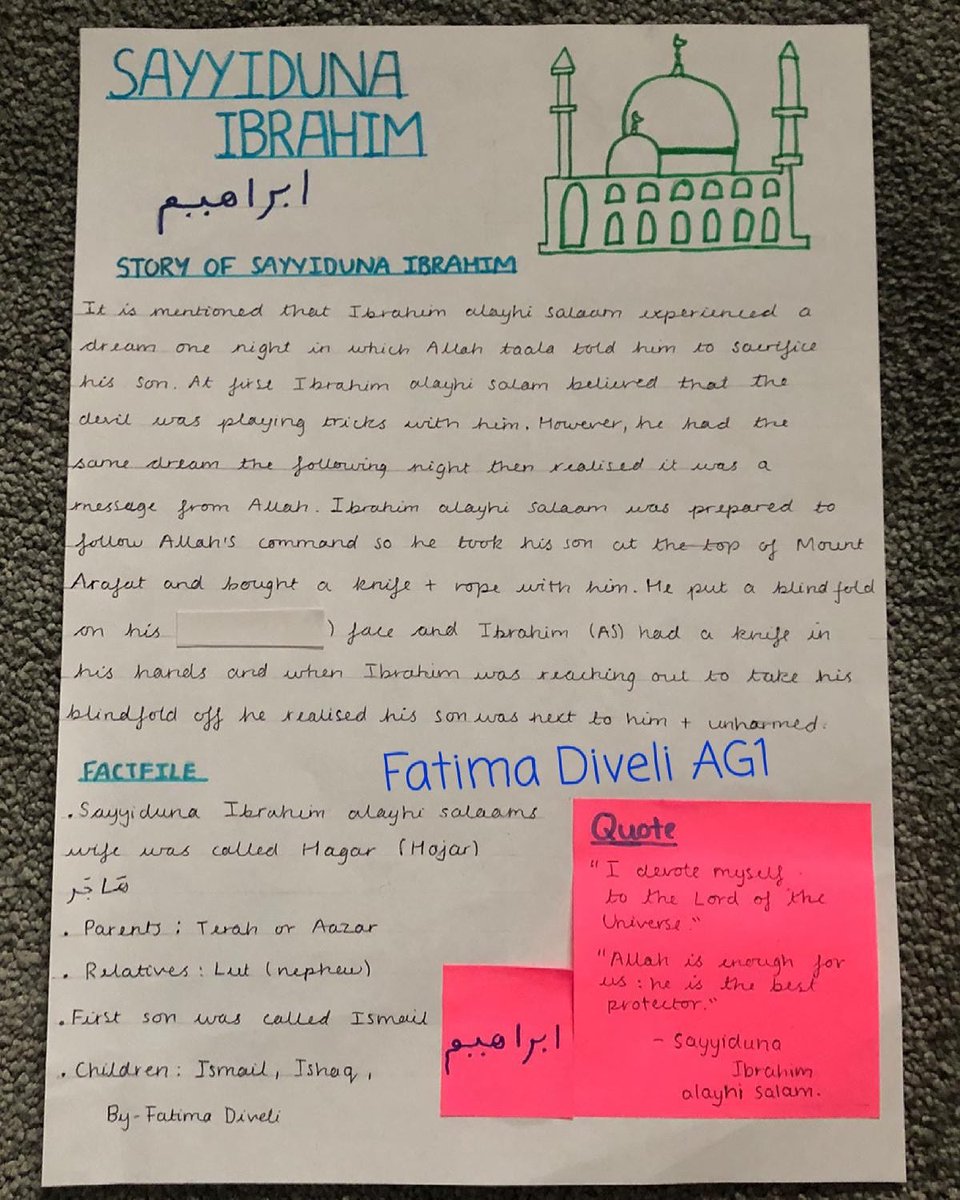 SAYYIDUNA
IBRAHIM
ابراهيم
STORY OF SAYYIDUNA IBRAHIM
It is mentioned that Ibrahim alayhi salaam experienced a
dream one night in which Allah taala told him to sacrifice
his son. At first Ibrahim alayhi salam believed that the
devil was playing tricks with him. However, he had the
same dream the following night then realised it was a
message from Allah. Ibrahim alayhi salaam was prepared to
follow Allah's command so he took his son at the top of Mount
Arafat and bought a knife + rope with him. He put a blindfold
on his ) face and Ibrahim (AS) had a knife in
his hands and when Ibrahim was reaching out to take his
blindfold off he realised his son was next to him + unharmed.
Fatima Diveli AG1
FACTFILE
. Sayyiduna Ibrahim alayhi salaams
wife was called Hagar (Hajar)
هَاجَر
. Parents : Terah or Aazar
. Relatives : Lut (nephew)
. First son was called Ismail
. Children : Ismail, Ishaq,
By - Fatima Diveli
ابراهيم
Quote
"I devote myself
to the Lord of the
Universe."
"Allah is enough for
us : he is the best
protector."
- Sayyiduna
Ibrahim
alayhi salam.